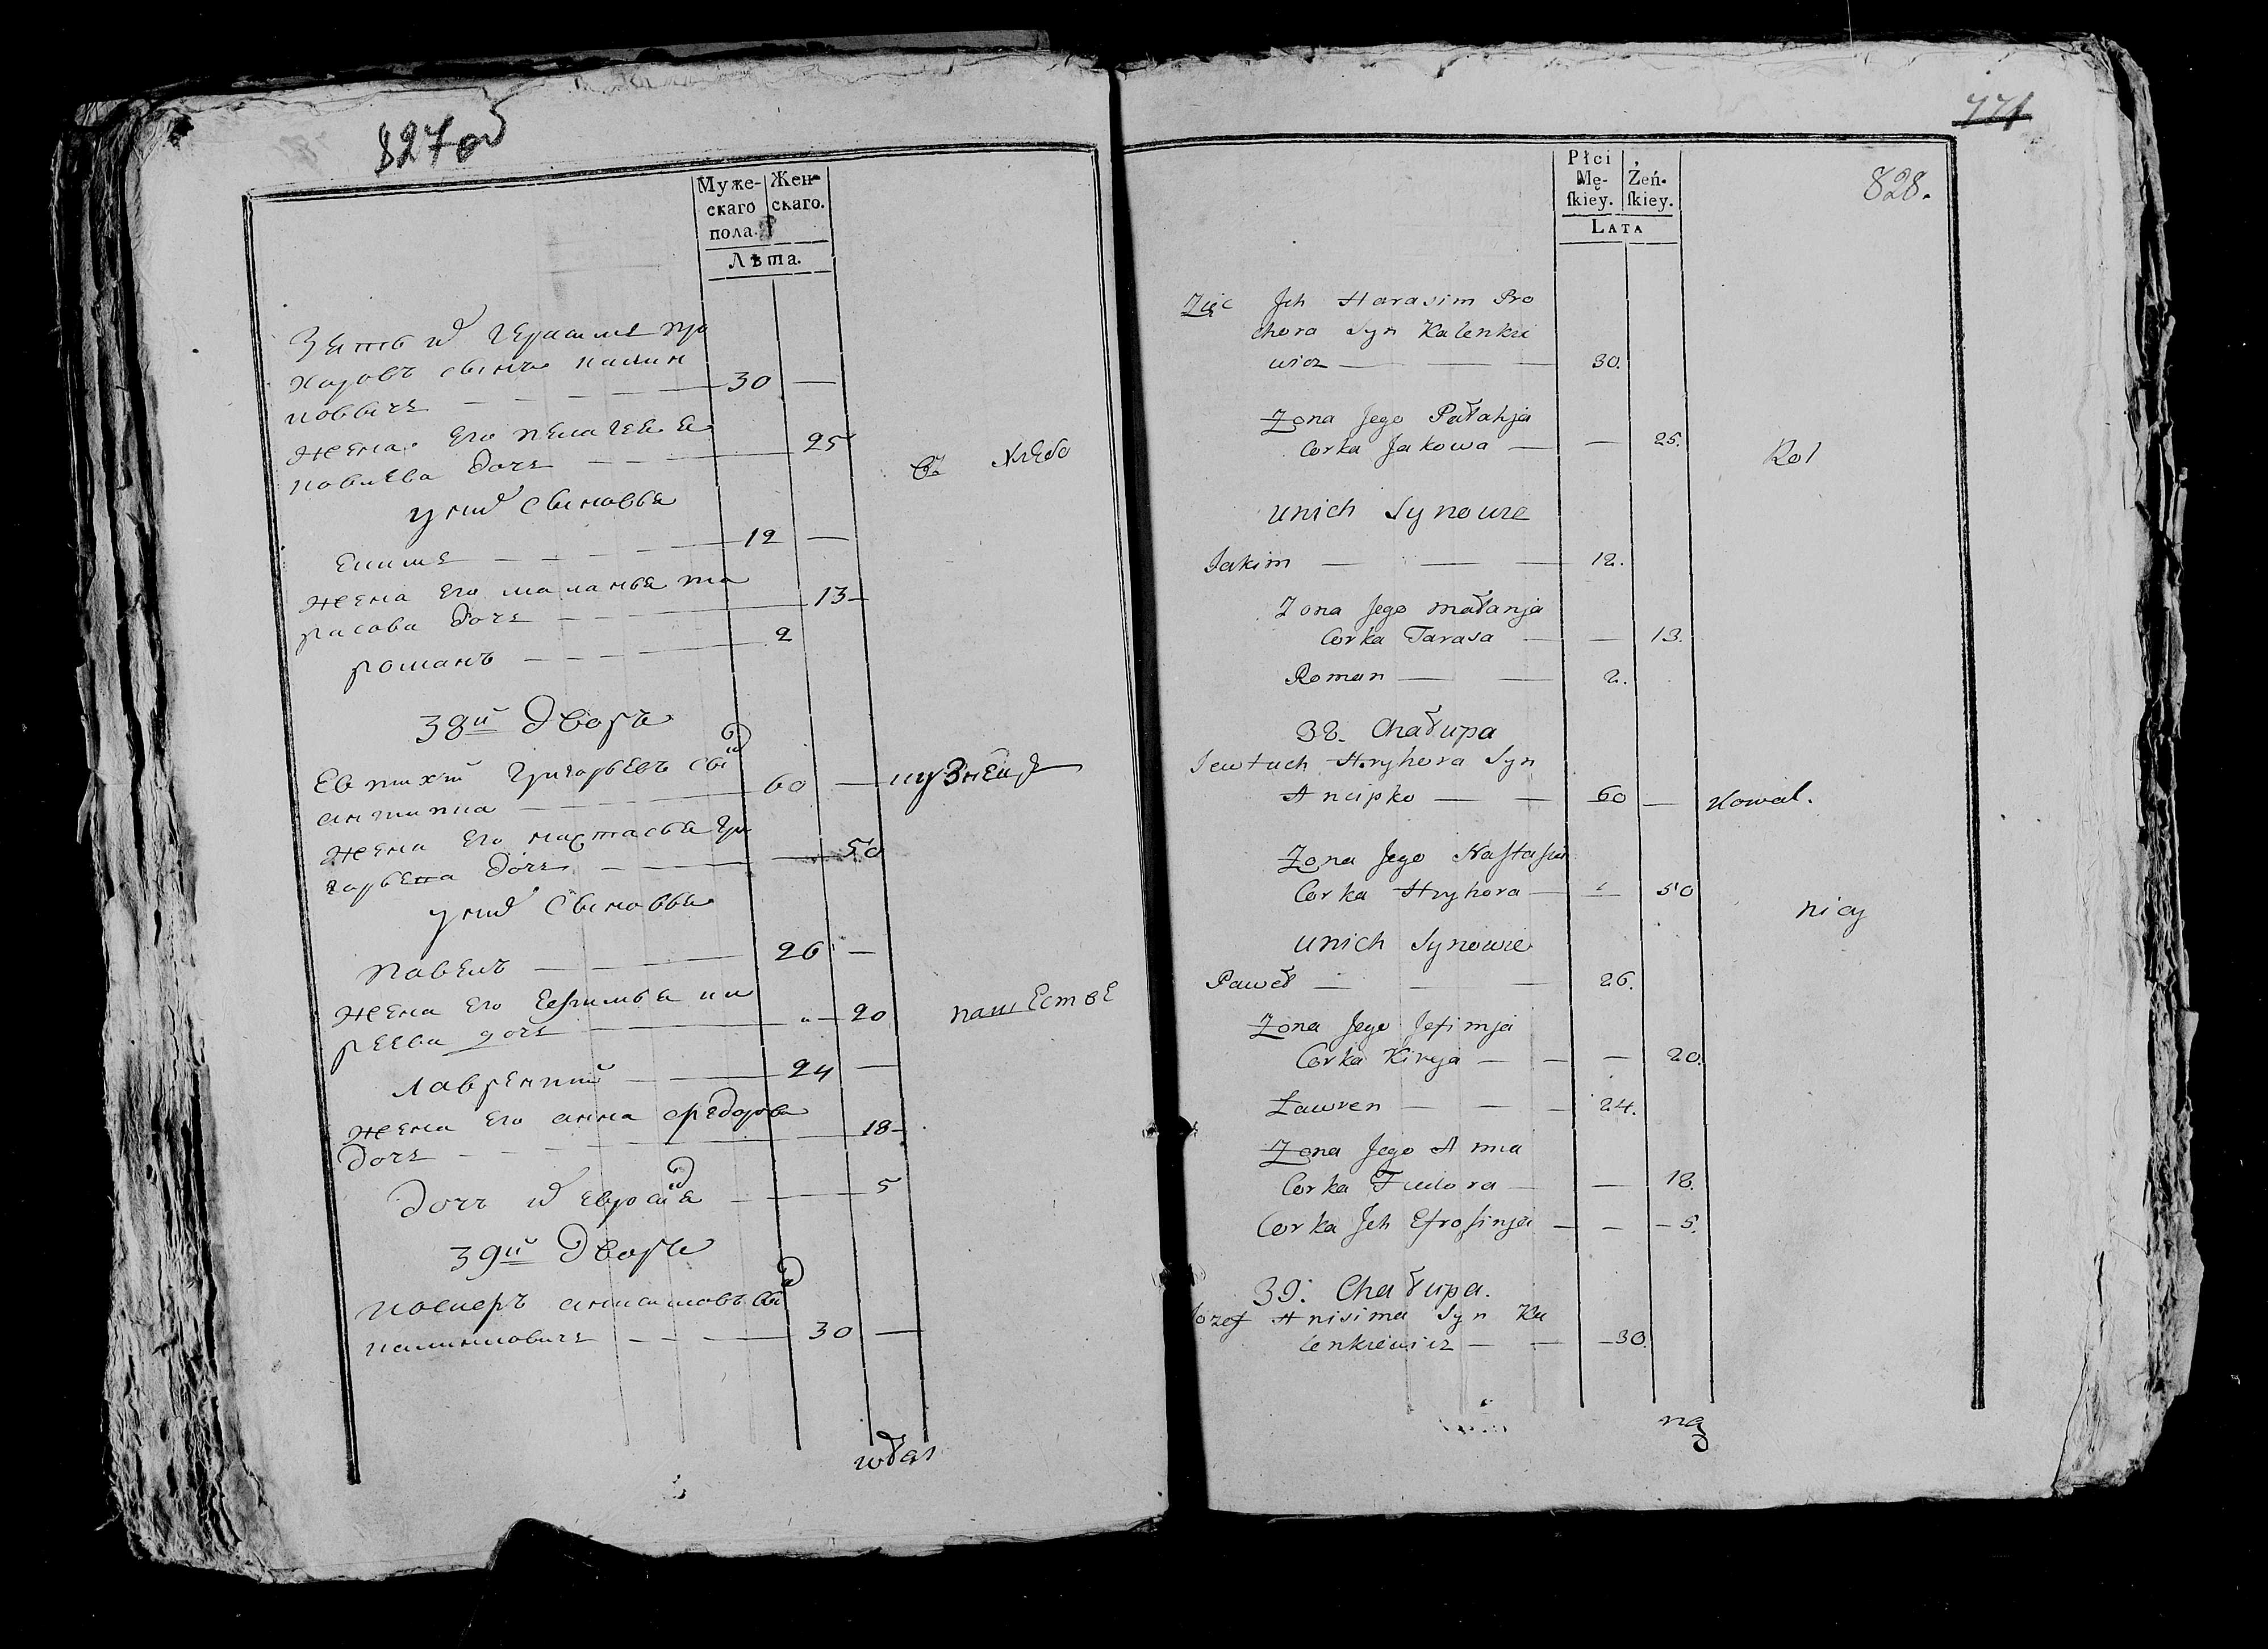 827 об
Муже-
скаго
пола.
Жен-
скаго.
Лѣта.
Зять их Герасимъ про
хоровъ сынъ калин
ковичъ — 30 —
жена Его пелагеея я
ковлева дочь — 25
въ хлебо
у них сыновья
Екимъ — 12 —
жена Его маланья та
расова дочь — 13 —
романъ — 2
38й дворъ
Евтихий Григорьевъ сын
антипка — 60 — кузнецъ
жена Его настасья Гри
горьева дочь — 50
у них сыновья
павелъ — 26 —
жена Его Ефимья ки
реева дочь — 20
пашестве
лаврентий — 24 —
жена Его анна федорова
дочь — 18 —
дочь их Евросиня — 5
39й дворъ
иосиеръ анисимовъ сын
калинковичъ — 30 —
771
828.
Płci
Mę-
skiey.
Żeń-
skiey.
LATA
Zięc Jch Harasim Pro
chora Syn Kalenkie
wicz — 30.
Zona Jego Pałahja
Corka Jakowa — — 25.
Rol
unich Synowie
Jakim — 12.
Zona Jego małanja
Corka Tarasa — — 13.
Roman — 2.
38. Chałupa
Jewtuch Hryhora Syn
Ancipko — 60 — Kowal.
Zona Jego Nastasia
Corka Hryhora — — 50
nicy
unich Synowie
Paweł — 26.
Zona Jego Jefimja
Corka Kireja — — 20.
Ławren — 24.
Zona Jego Anna
Corka Fiedora — — 18.
Corka Jch Efrosinja — — 5.
39. Chałupa.
Jozef Anisima Syn Ka
lenkiewicz — 30.